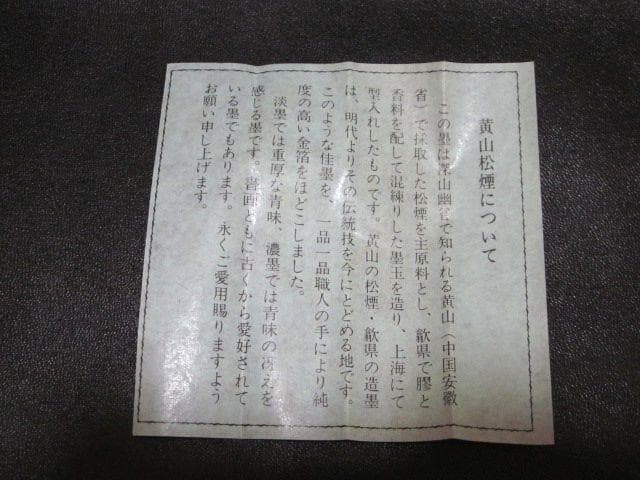 黄山松煙について
この墨は深山幽谷で知られる黄山(中国安徽
省)で採取した松煙を主原料とし、歙県で膠と
香料を配して混練りした墨玉を造り、上海にて
型入れしたものです。黄山の松煙・歙県の造墨
は、明代よりその伝統技を今にとどめる地です。
このような佳墨を、一品一品職人の手により純
度の高い金箔をほどこしました。
淡墨では重厚な青味、濃墨では青味の冴えを
感じる墨です。書画ともに古くから愛好されて
いる墨でもあります。永くご愛用賜りますよう
お願い申し上げます。